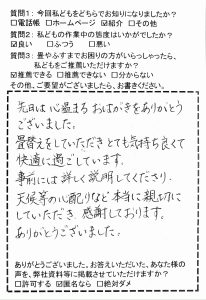 質問1：今回私どもをどちらでお知りになりましたか？
□電話帳 □ホームページ ☑紹介 □その他
質問2：私どもの作業中の態度はいかがでしたか？
☑良い □ふつう □悪い
質問3：畳やふすまでお困りの方がいらっしゃったら、
私どもをご推薦いただけますか？
☑推薦できる □推薦できない □分からない
その他、ご要望がございましたら、お書きください。
先日は心温まるおはがきをありがとう
ございました。
畳替えをしていただきとても気持ち良くて
快適に過ごしています。
事前には詳しく説明してくださり、
天候等の心配りなど本当に親切に
していただき、感謝しております。
ありがとうございました。
ありがとうございました。お答えいただいた、あなた様の
声を、弊社資料等に掲載させていただけますか？
□許可する ☑匿名なら □絶対ダメ